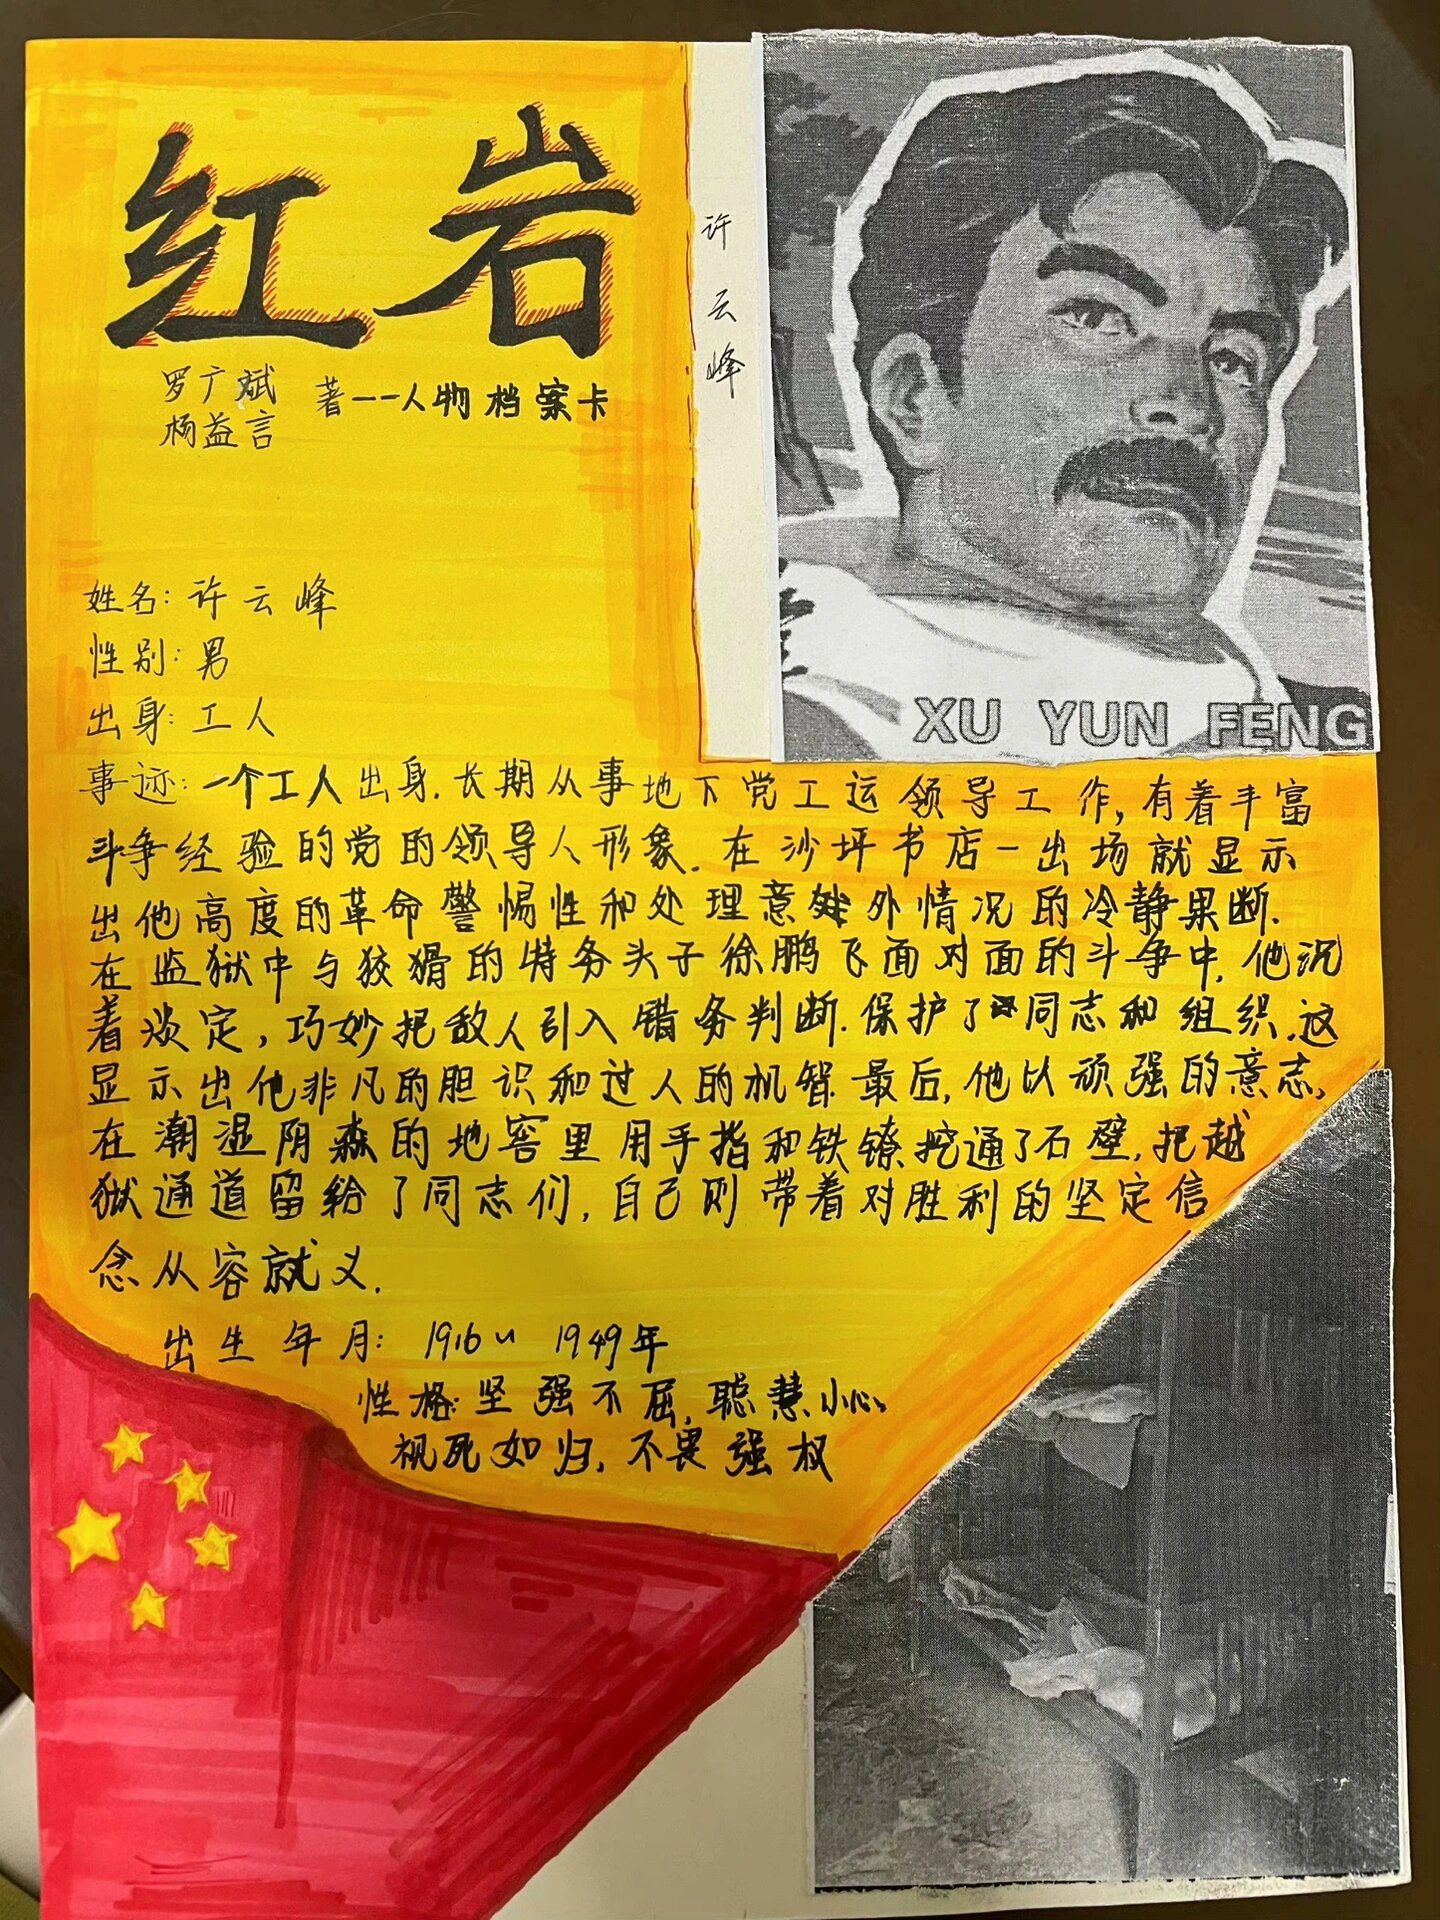 红岩
罗广斌
杨益言
著--人物档案卡
许云峰
XU YUN FENG
姓名:许云峰
性别:男
出身:工人
事迹:一个工人出身.长期从事地下党工运领导工作,有着丰富
斗争经验的党的领导人形象.在沙坪书店一出场就显示
出他高度的革命警惕性和处理意外情况的冷静果断.
在监狱中与狡猾的特务头子徐鹏飞面对面的斗争中,他沉
着淡定,巧妙把敌人引入错务判断.保护了同志和组织.这
显示出他非凡的胆识和过人的机智.最后,他以顽强的意志,
在潮湿阴森的地窖里用手指和铁镣挖通了石壁,把越
狱通道留给了同志们,自己则带着对胜利的坚定信
念从容就义.
出生年月:1916~1949年
性格:坚强不屈,聪慧小心、
视死如归,不畏强权